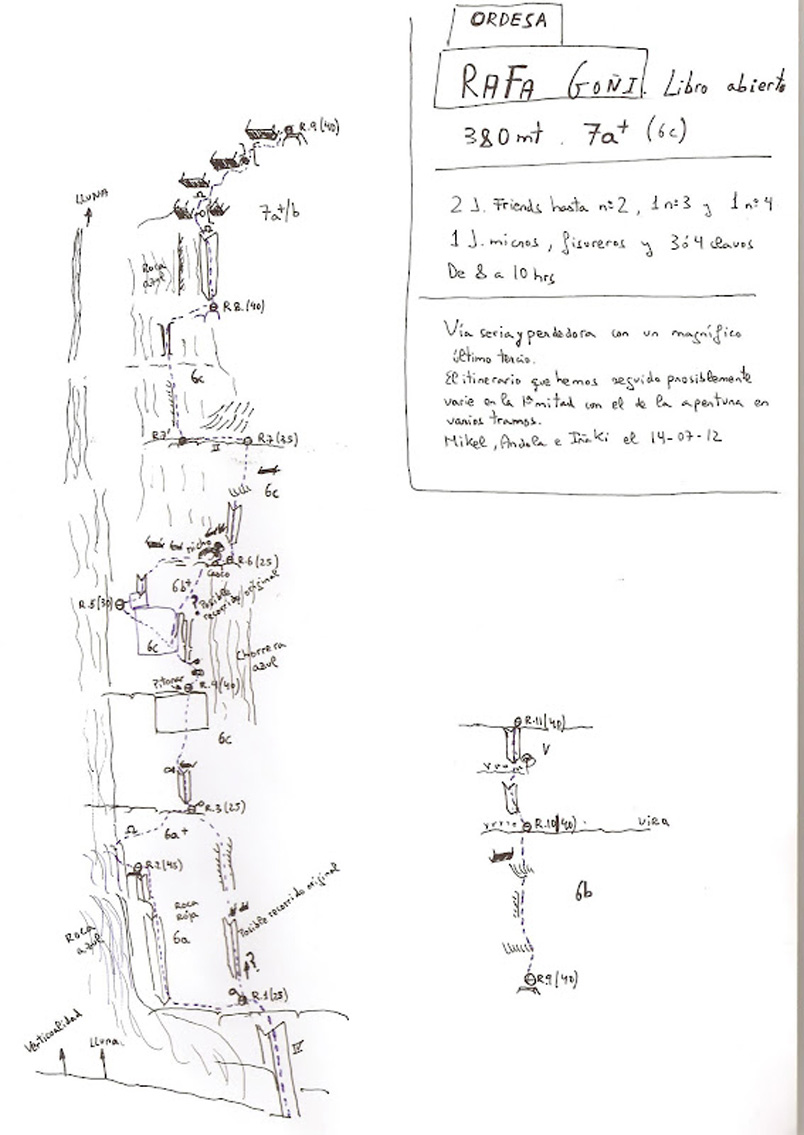 ORDESA
RAFA GOÑI. Libro abierto
380mt. 7a+ (6c)
2 J. Friends hasta nº2, 1 nº3 y 1 nº4
1 J. micros, fisureros y 3 ó 4 clavos
De 8 a 10 hrs
Vía seria y perdedora con un magnífico
último tercio.
El itinerario que hemos seguido prosiblemente
varie en la 1ª mitad con el de la apertura en
varios tramos.
Mikel, Andola e Iñaki el 14-07-12
R.9(40)
LLUNA
7a+/b
Roca
azul
R.8.(40)
6c
R.7'
II
R.7(35)
6c
nicho
R.6(25)
Casco
6b+
R.5(30)
?
Posible
recorrido original
6c
Chorrera
azul
Pitones
R.4(40)
6c
R.3(25)
6a+
R.2(45)
Roca
Roja
Posible recorrido original
Roca
azul
6a
?
R.1(25)
Verticualidad
LLuna.
IV
R.11(40)
V
R.10(40)
VIRA
6b
R.9(40)